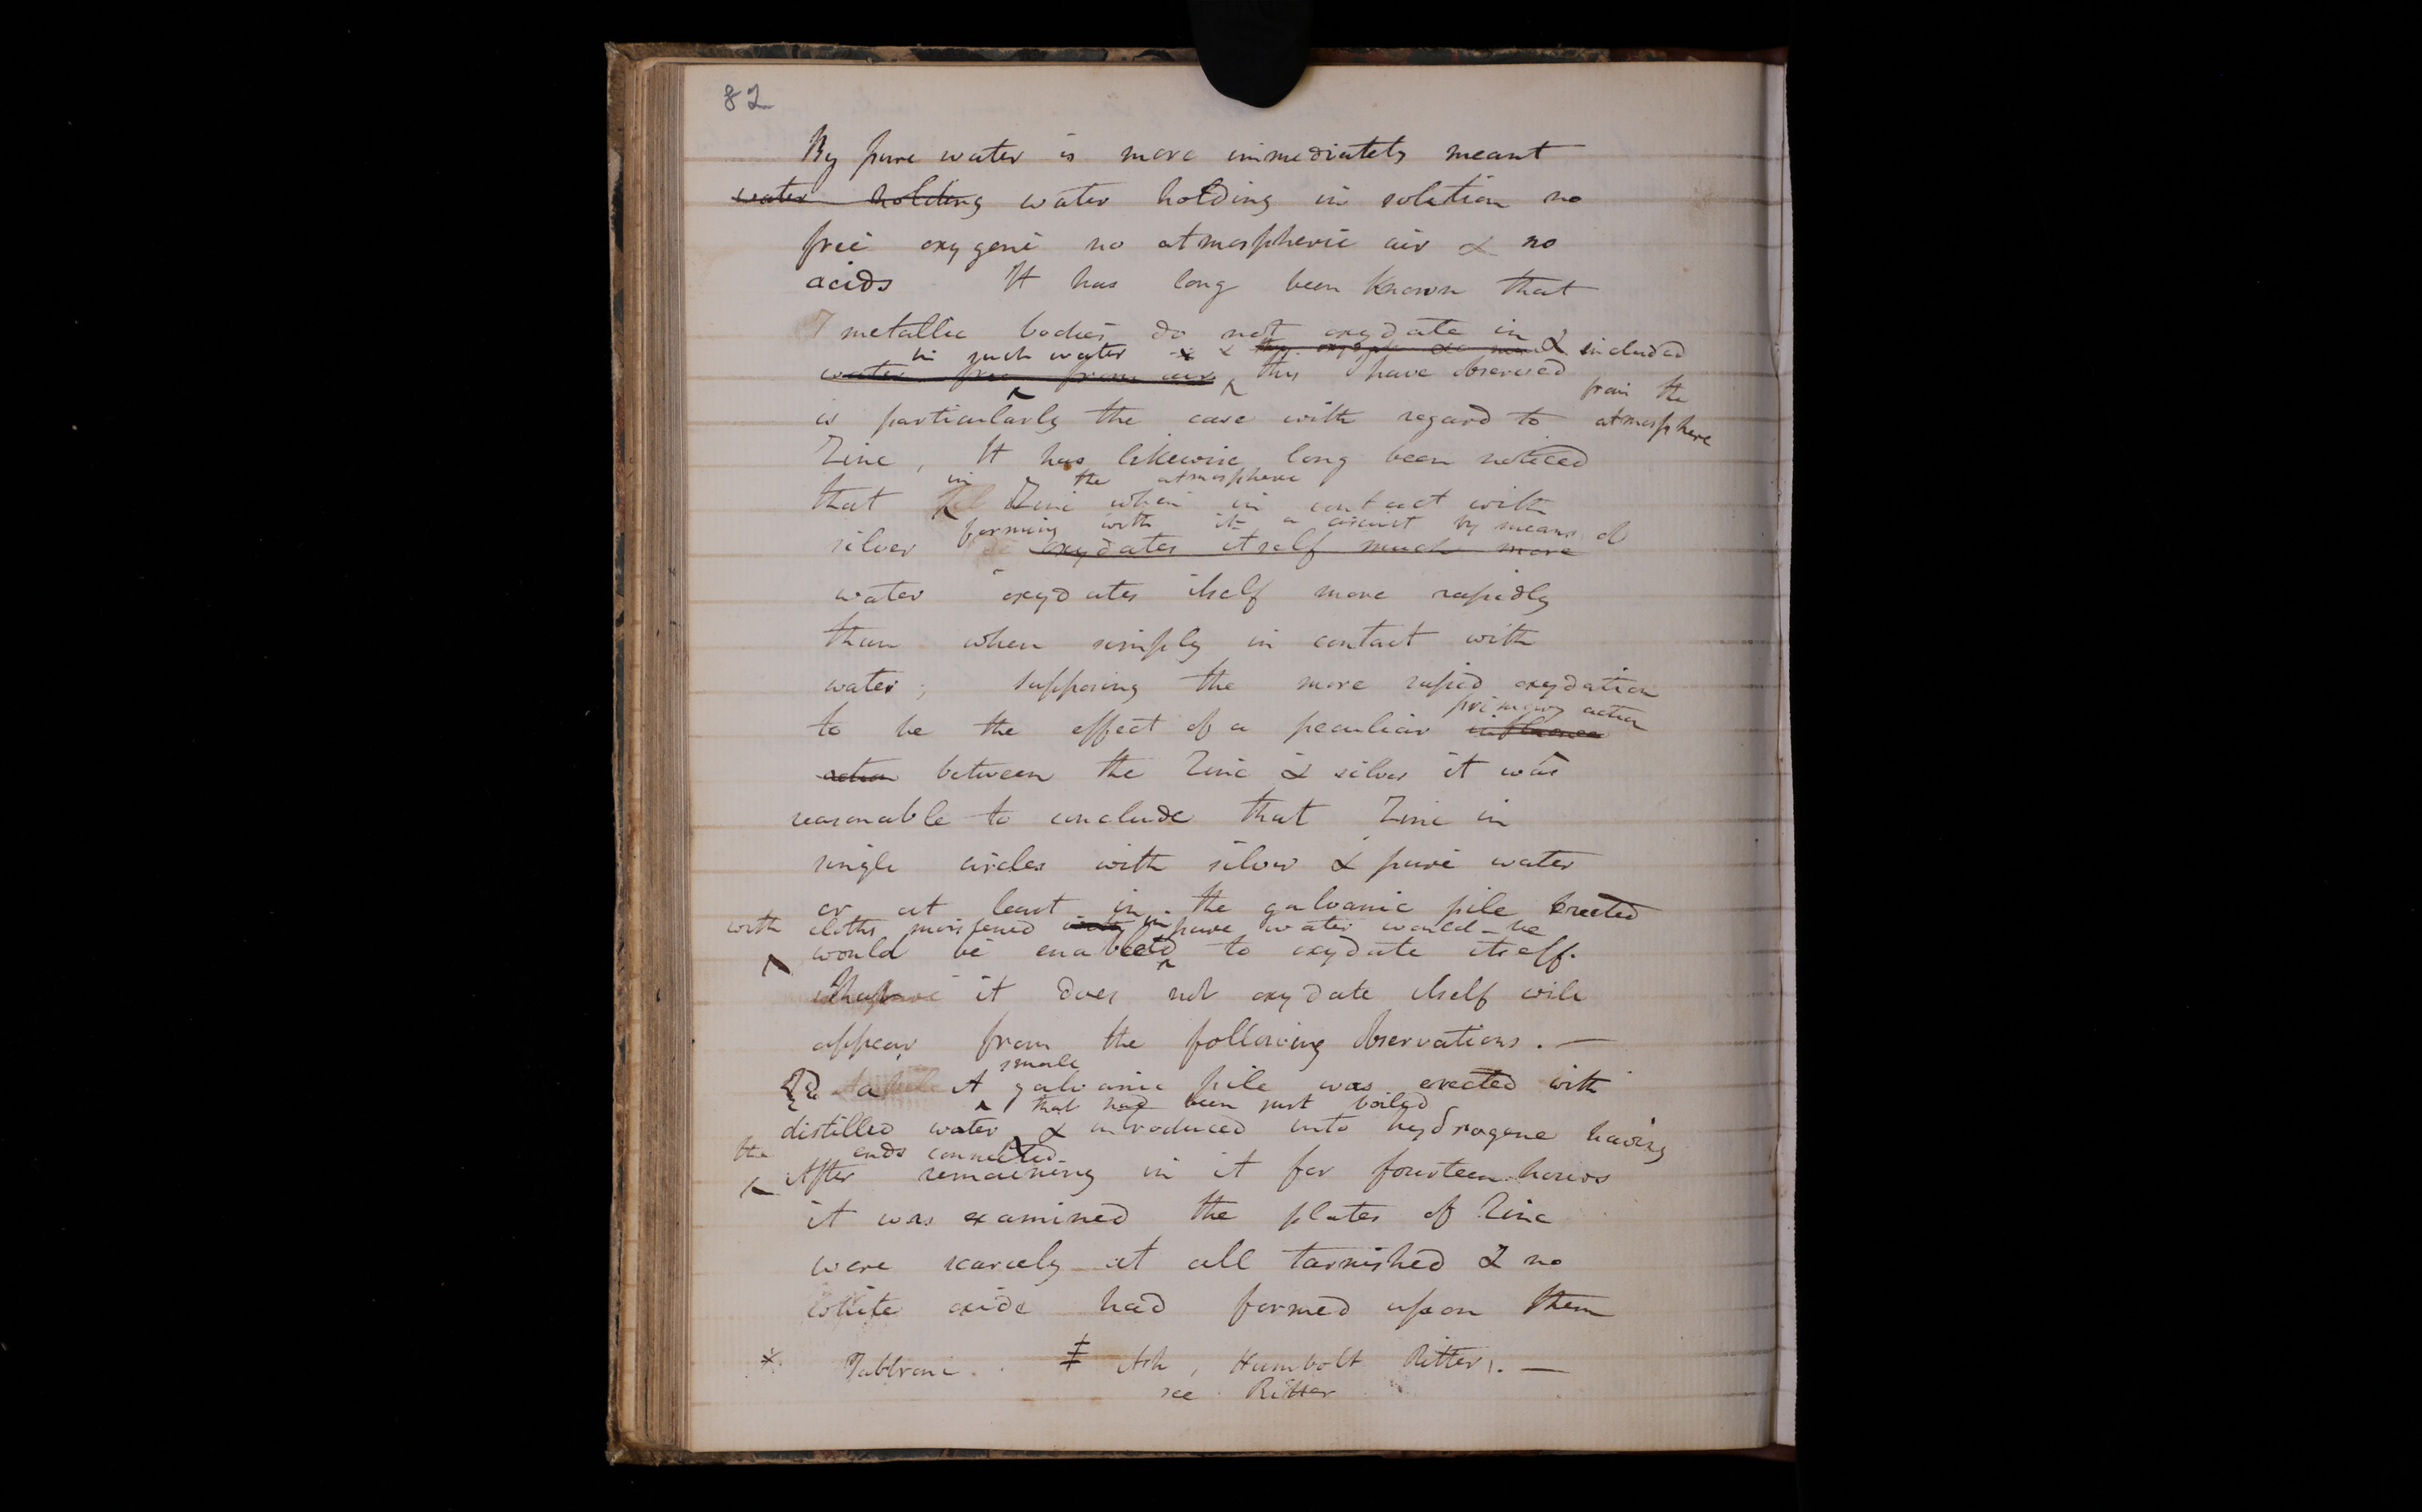 82
By pure water is more immediately meant
water holding water holding in solution no
free oxygene no atmospheric air & no
acids It has long been known that
metallic bodies do not oxydate in & included
in such water &
water free from air this I have observed
from the
is particularly the case with regard to atmosphere
Zinc, It has likewise long been noticed
in the atmosphere
that Zinc when in contact with
forming with it a circuit by means of
silver oxydates itself much more
water oxydates itself more rapidly
than when simply in contact with
water; supposing the more rapid oxydation
primary action
to be the effect of a peculiar influence
action between the Zinc & silver it was
reasonable to conclude that Zinc in
single circles with silver & pure water
or at least in the galvanic pile erected
with cloths moistened in pure water would be
would be enabled to oxydate itself.
it does not oxydate itself will
appear from the following observations. —
small
A galvanic pile was erected with
that had been just boiled
distilled water & introduced into hydrogene having
the ends connected
After remaining in it for fourteen hours
it was examined the plates of Zinc
were scarcely at all tarnished & no
white oxide had formed upon them
* Fabbroni. ‡ Ash, Humbolt Ritter. —
see Ritter